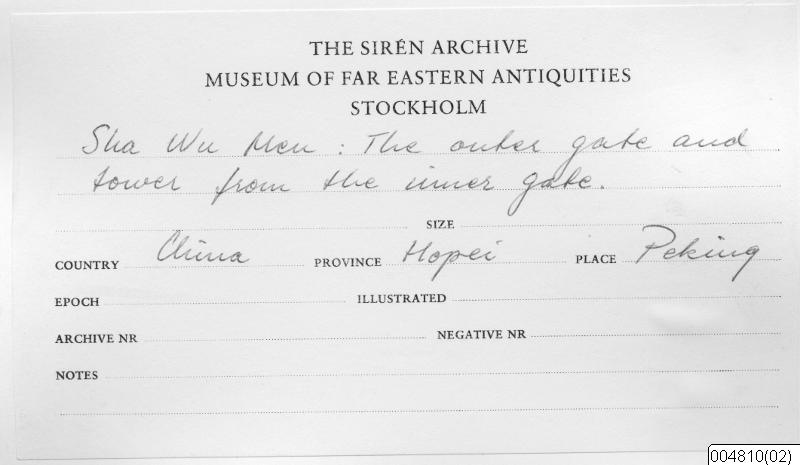 THE SIRÉN ARCHIVE
MUSEUM OF FAR EASTERN ANTIQUITIES
STOCKHOLM
Sha Wu Men : The outer gate and
tower from the inner gate.
SIZE
COUNTRY China PROVINCE Hopei PLACE Peking
EPOCH ILLUSTRATED
ARCHIVE NR NEGATIVE NR
NOTES
004810(02)